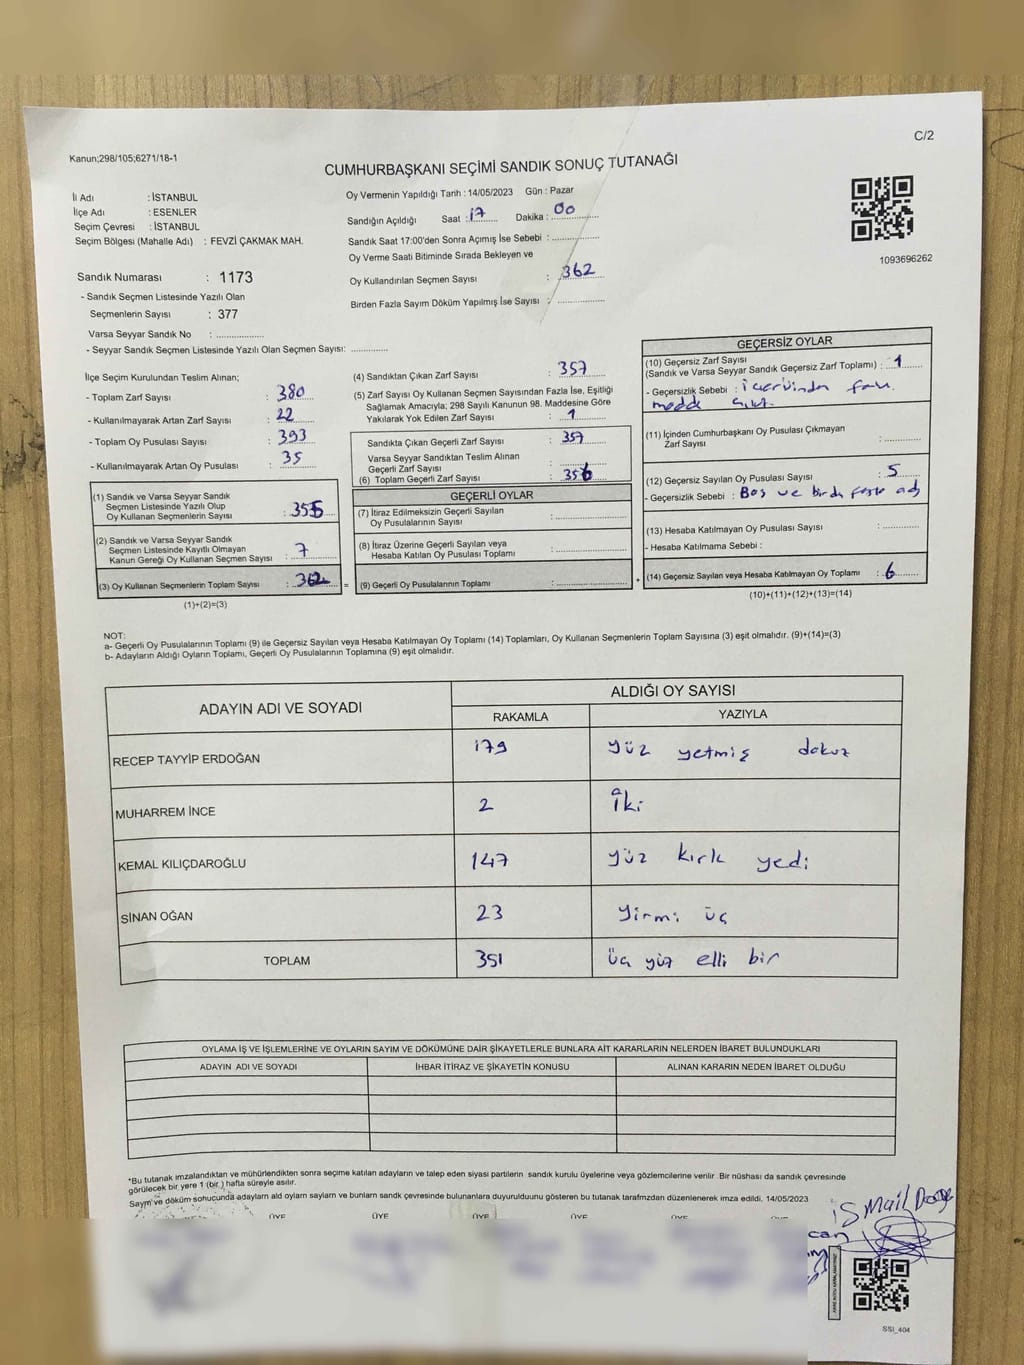 C/2
Kanun;298/105;6271/18-1
CUMHURBAŞKANI SEÇİMİ SANDIK SONUÇ TUTANAĞI
İl Adı : İSTANBUL
İlçe Adı : ESENLER
Seçim Çevresi : İSTANBUL
Seçim Bölgesi (Mahalle Adı) : FEVZİ ÇAKMAK MAH.
Sandık Numarası : 1173
- Sandık Seçmen Listesinde Yazılı Olan
Seçmenlerin Sayısı : 377
Varsa Seyyar Sandık No : ................
- Seyyar Sandık Seçmen Listesinde Yazılı Olan Seçmen Sayısı: ............
Oy Vermenin Yapıldığı Tarih : 14/05/2023 Gün : Pazar
Sandığın Açıldığı Saat : 17 Dakika : 00
Sandık Saat 17:00'den Sonra Açımış İse Sebebi : ...............
Oy Verme Saati Bitiminde Sırada Bekleyen ve
Oy Kullandırılan Seçmen Sayısı : 362
Birden Fazla Sayım Döküm Yapılmış İse Sayısı : ...............
1093696262
İlçe Seçim Kurulundan Teslim Alınan;
- Toplam Zarf Sayısı : 380
- Kullanılmayarak Artan Zarf Sayısı : 22
- Toplam Oy Pusulası Sayısı : 393
- Kullanılmayarak Artan Oy Pusulası : 35
(1) Sandık ve Varsa Seyyar Sandık
Seçmen Listesinde Yazılı Olup
Oy Kullanan Seçmenlerin Sayısı : 355
(2) Sandık ve Varsa Seyyar Sandık
Seçmen Listesinde Kayıtlı Olmayan
Kanun Gereği Oy Kullanan Seçmen Sayısı : 7
(3) Oy Kullanan Seçmenlerin Toplam Sayısı : 362 =
(1)+(2)=(3)
(4) Sandıktan Çıkan Zarf Sayısı : 357
(5) Zarf Sayısı Oy Kullanan Seçmen Sayısından Fazla İse, Eşitliği
Sağlamak Amacıyla; 298 Sayılı Kanunun 98. Maddesine Göre
Yakılarak Yok Edilen Zarf Sayısı : 1
Sandıkta Çıkan Geçerli Zarf Sayısı : 357
Varsa Seyyar Sandıktan Teslim Alınan
Geçerli Zarf Sayısı : ............
(6) Toplam Geçerli Zarf Sayısı : 356
GEÇERLİ OYLAR
(7) İtiraz Edilmeksizin Geçerli Sayılan
Oy Pusulalarının Sayısı : ...............
(8) İtiraz Üzerine Geçerli Sayılan veya
Hesaba Katılan Oy Pusulası Toplamı : ...............
(9) Geçerli Oy Pusulalarının Toplamı : ............... +
GEÇERSİZ OYLAR
(10) Geçersiz Zarf Sayısı
(Sandık ve Varsa Seyyar Sandık Geçersiz Zarf Toplamı) : 1
- Geçersizlik Sebebi :
(11) İçinden Cumhurbaşkanı Oy Pusulası Çıkmayan
Zarf Sayısı : ............
(12) Geçersiz Sayılan Oy Pusulası Sayısı : 5
- Geçersizlik Sebebi : Boş ve birden
(13) Hesaba Katılmayan Oy Pusulası Sayısı : ............
- Hesaba Katılmama Sebebi :
(14) Geçersiz Sayılan veya Hesaba Katılmayan Oy Toplamı : 6
(10)+(11)+(12)+(13)=(14)
NOT:
a- Geçerli Oy Pusulalarının Toplamı (9) ile Geçersiz Sayılan veya Hesaba Katılmayan Oy Toplamı (14) Toplamları, Oy Kullanan Seçmenlerin Toplam Sayısına (3) eşit olmalıdır. (9)+(14)=(3)
b- Adayların Aldığı Oyların Toplamı, Geçerli Oy Pusulalarının Toplamına (9) eşit olmalıdır.
ADAYIN ADI VE SOYADI ALDIĞI OY SAYISI
RAKAMLA YAZIYLA
RECEP TAYYİP ERDOĞAN 179 yüz yetmiş dokuz
MUHARREM İNCE 2 iki
KEMAL KILIÇDAROĞLU 147 yüz kırk yedi
SİNAN OĞAN 23 yirmi üç
TOPLAM 351 üç yüz elli bir
OYLAMA İŞ VE İŞLEMLERİNE VE OYLARIN SAYIM VE DÖKÜMÜNE DAİR ŞİKAYETLERLE BUNLARA AİT KARARLARIN NELERDEN İBARET BULUNDUKLARI
ADAYIN ADI VE SOYADI İHBAR İTİRAZ VE ŞİKAYETİN KONUSU ALINAN KARARIN NEDEN İBARET OLDUĞU
*Bu tutanak imzalandıktan ve mühürlendikten sonra seçime katılan adayların ve talep eden siyasi partilerin sandık kurulu üyelerine veya gözlemcilerine verilir. Bir nüshası da sandık çevresinde
görülecek bir yere 1 (bir ) hafta süreyle asılır.
Sayım ve döküm sonucunda adayların ald oyların sayılarn ve bunların sandk çevresinde bulunanlara duyurulduunu gösteren bu tutanak tarafmzdan düzenlenerek imza edildi, 14/05/2023
ÜYE ÜYE ÜYE ÜYE ÜYE ÜYE
iSmail
can
SSI_404